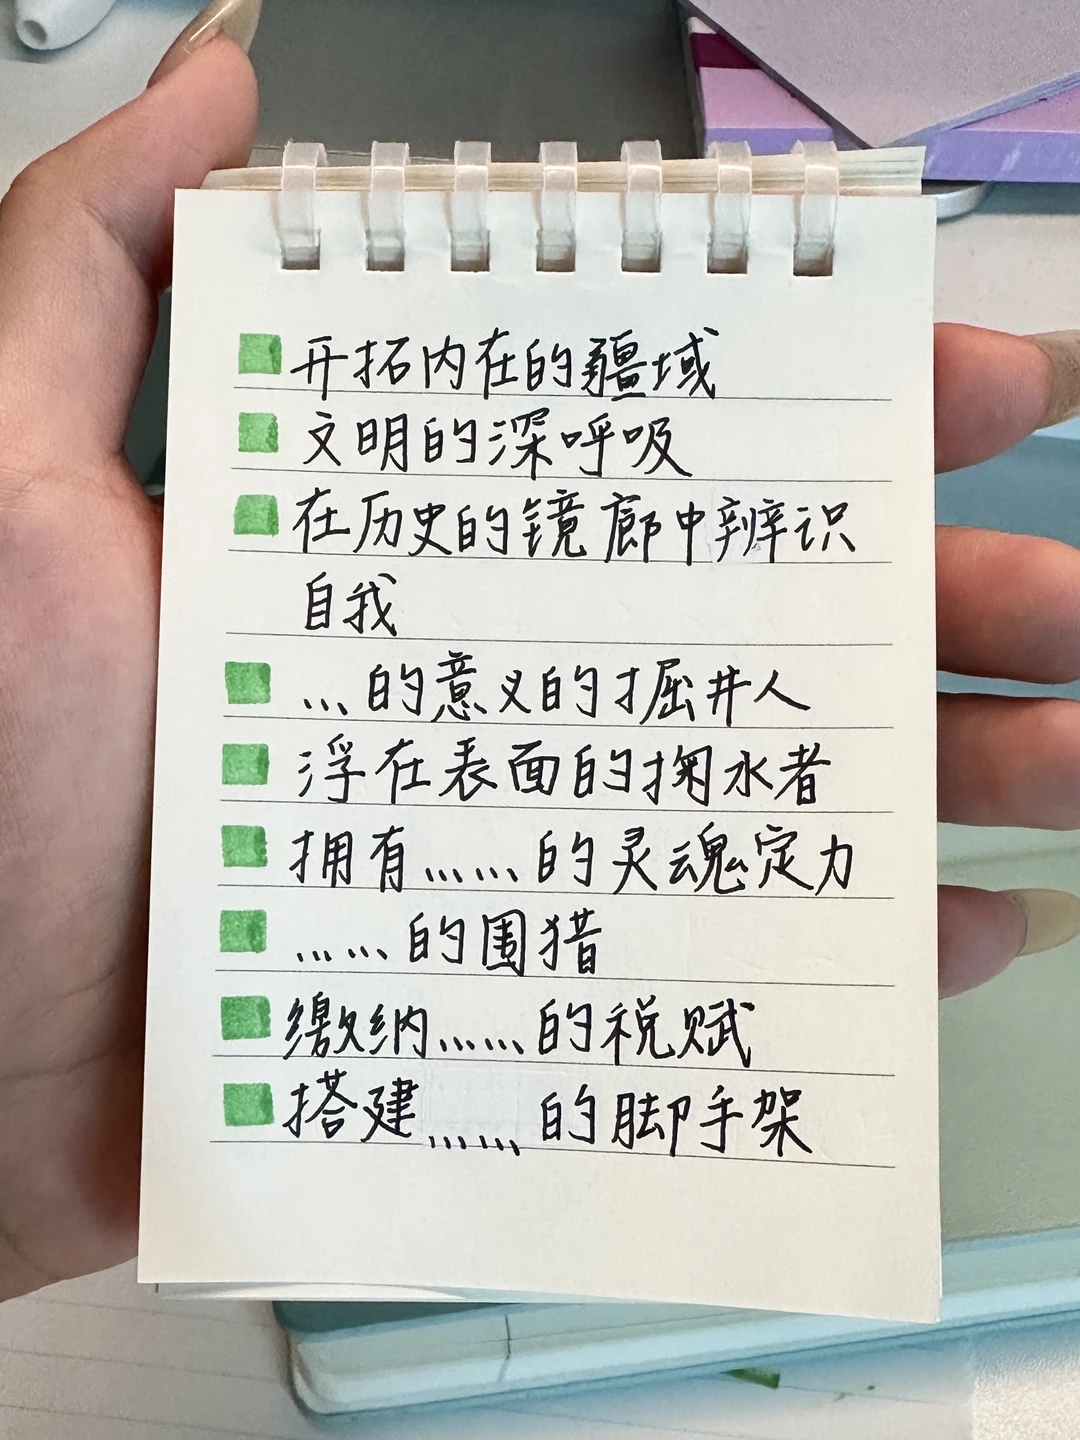 开拓内在的疆域
文明的深呼吸
在历史的镜廊中辨识
自我
...的意义的掘井人
浮在表面的掬水者
拥有……的灵魂定力
……的围猎
缴纳……的税赋
搭建……的脚手架